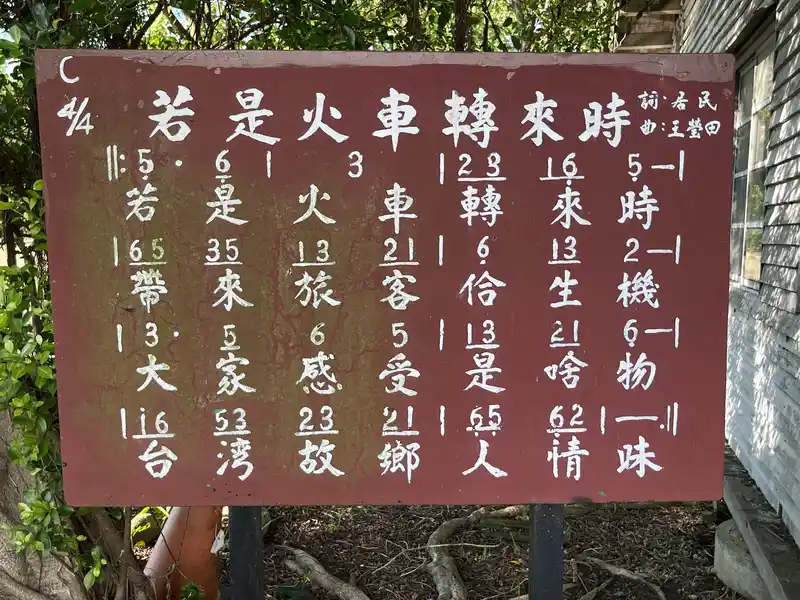 C
4/4
若是火車轉來時
詞：居民
曲：王瑩田
‖: 5̣ · 6̣ | 3 | 2̲3̲ 1̲6̲̣ 5̣ — |
若是火車轉來時
| 6̲5̲ 3̲5̲ 1̲3̲ 2̲1̲ | 6̣ 1̲3̲ 2 — |
帶來旅客佮生機
| 3 · 5̲ 6 5 | 1̲3̲ 2̲1̲ 6̣ — |
大家感受是啥物
| i̲6̲ 5̲3̲ 2̲3̲ 2̲1̲ | 6̲̣5̲̣ 6̲̣2̲ | 一 — :‖
台湾故鄉人情味